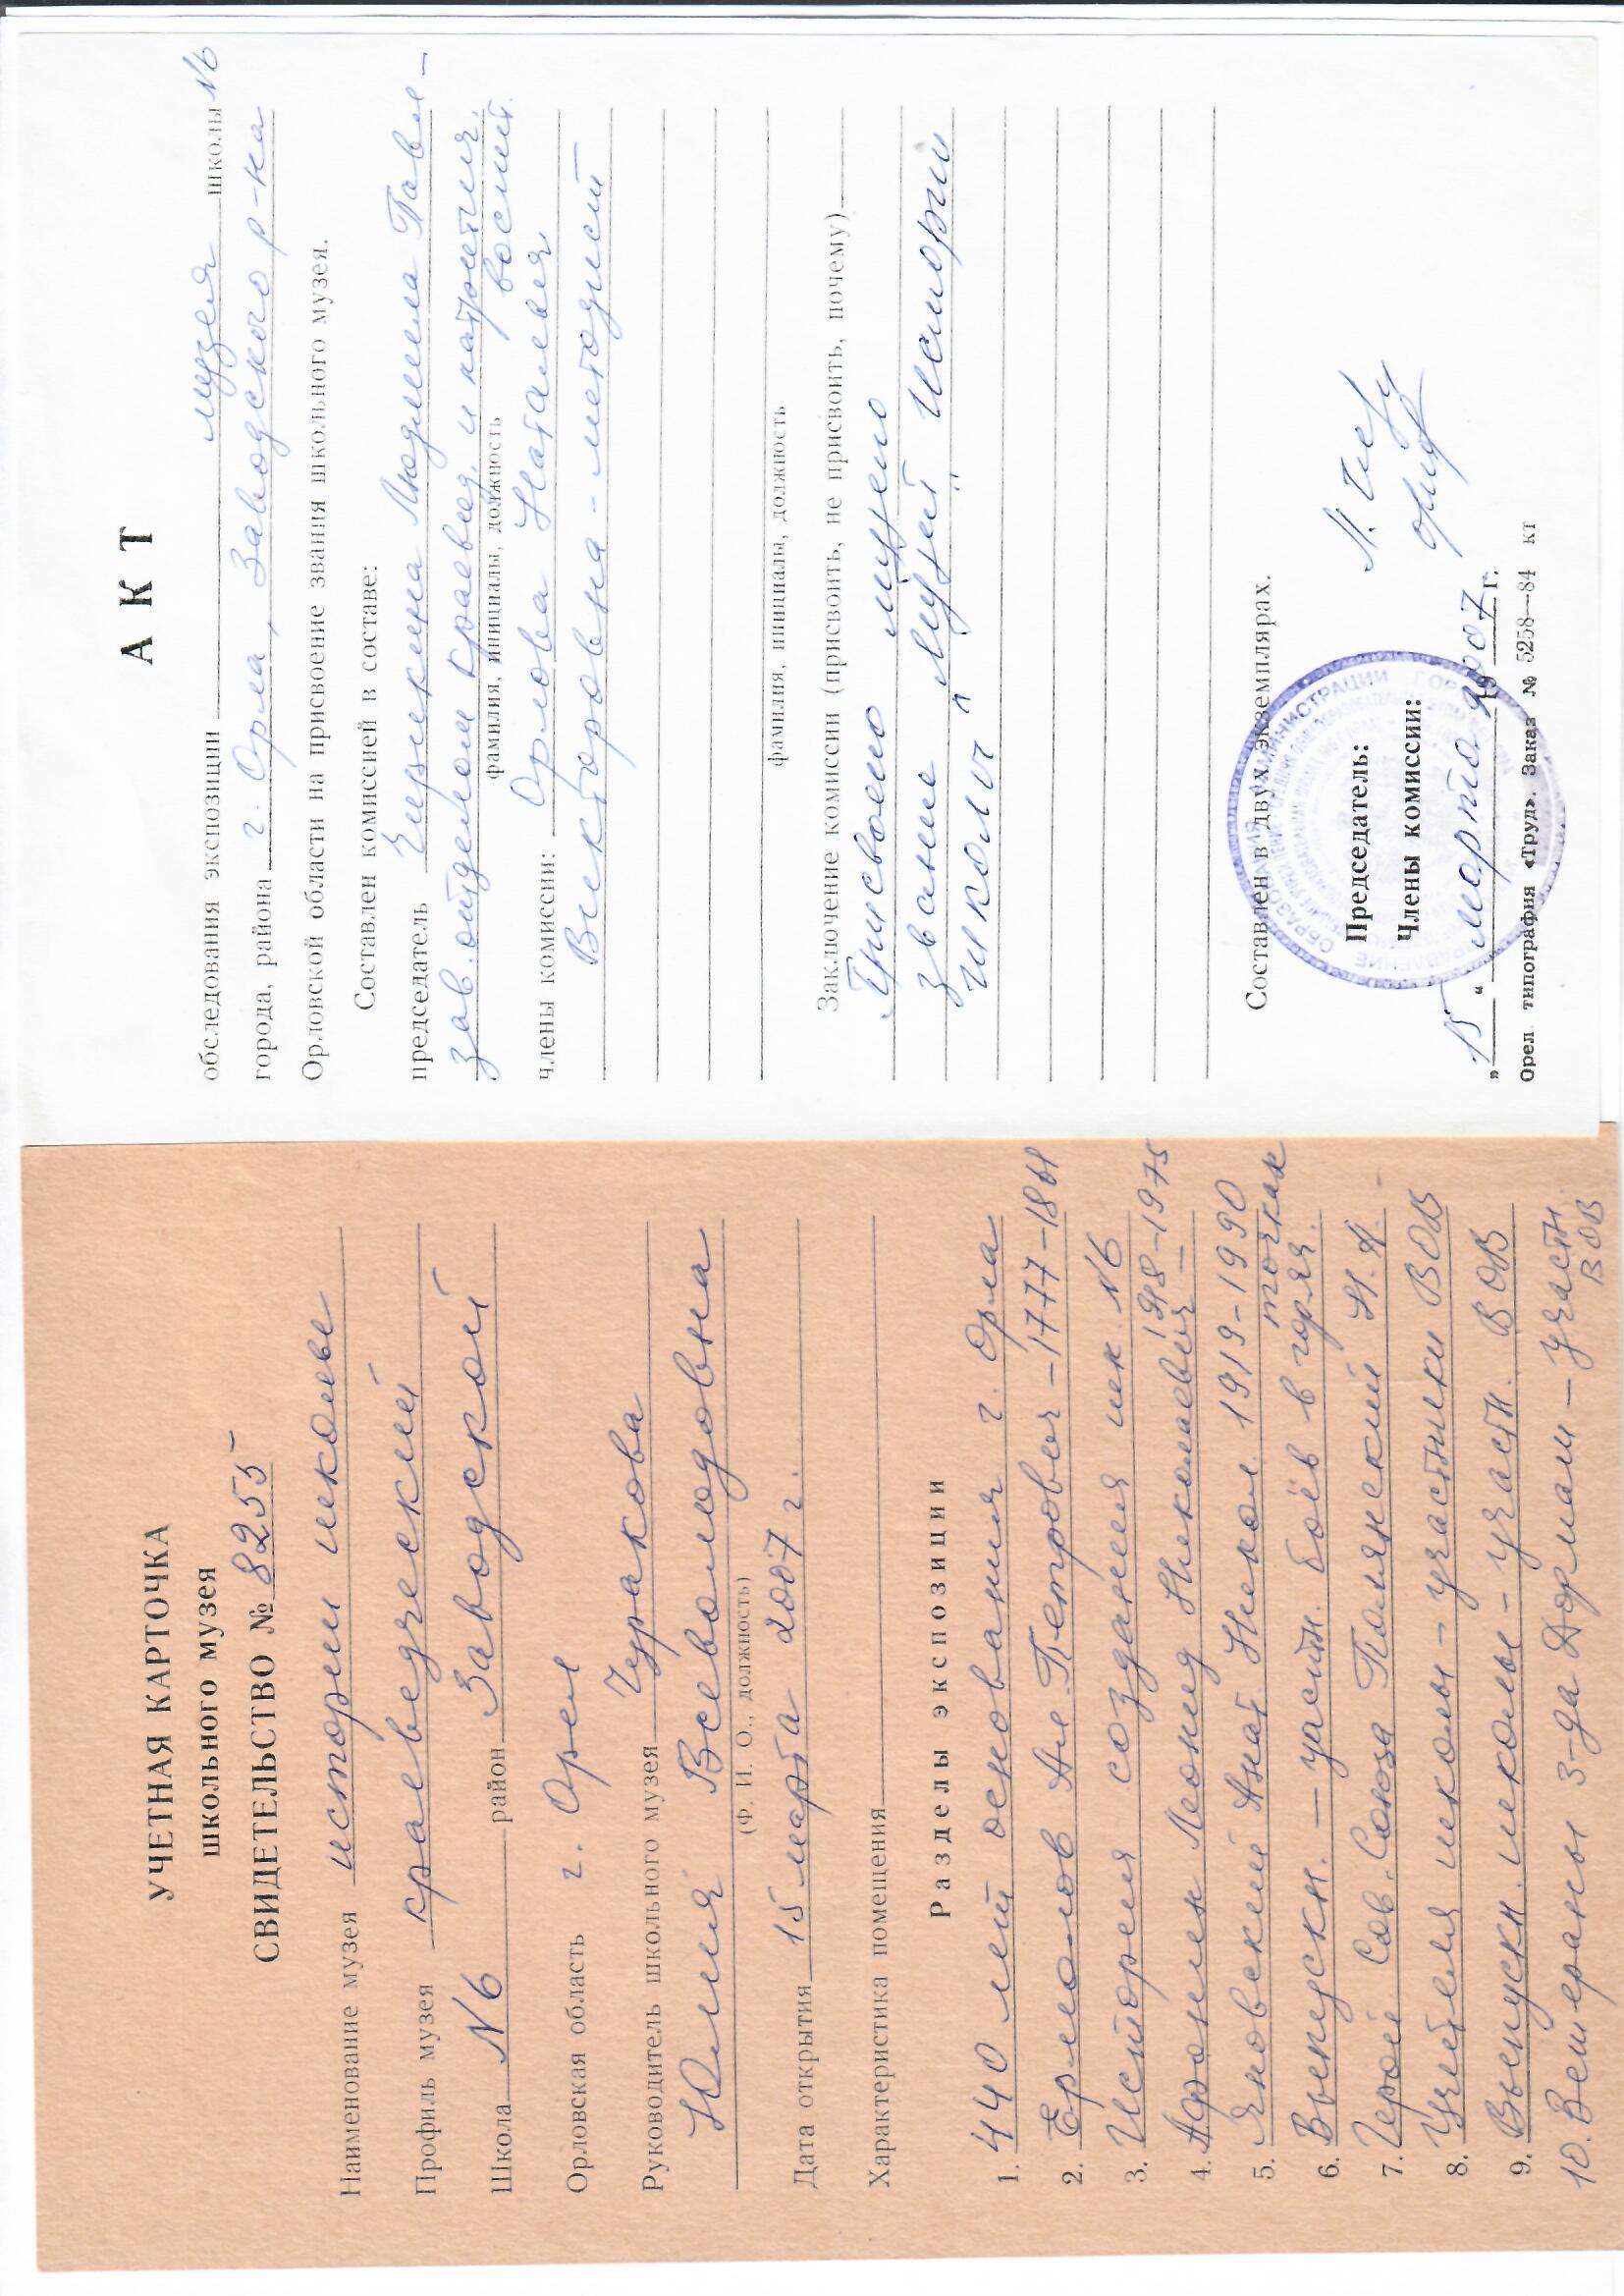 УЧЕТНАЯ КАРТОЧКА
школьного музея
СВИДЕТЕЛЬСТВО № 8255
Наименование музея истории школы
Профиль музея краеведческий
Школа N6 район Заводской
Орловская область г. Орел
Руководитель школьного музея Чуракова
Юлия Всеволодовна
(Ф. И. О., должность)
Дата открытия 15 марта 2007 г.
Характеристика помещения
Разделы экспозиции
1. 440 лет основания г. Орла
2. Ермолов Ал. Петрович – 1777–1861
3. История создания шк. N6
4. Афонин Леонид Николаевич 1918–1975
5. Яновский Анат. Никол. 1919–1990
6. Выпускн. – участн. боёв в горяч. точках
7. Герой Сов. Союза Полянский Н.А.
8. Учителя школы – участники ВОВ
9. Выпускн. школы – участн. ВОВ
10. Ветераны з-да Дормаш – участн. ВОВ
АКТ
обследования экспозиции музея школы N6
города, района г. Орла, Заводского р-на
Орловской области на присвоение звания школьного музея.
Составлен комиссией в составе:
председатель Людмила Павл-
зав. отделом краевед. и патриотич. воспит.
фамилия, инициалы, должность
члены комиссии: Орлова Наталия
Викторовна – методист
фамилия, инициалы, должность
Заключение комиссии (присвоить, не присвоить, почему)
Присвоено музею
звание „Музей Истории
школы"
Составлен в двух экземплярах.
Председатель:
Члены комиссии:
„15" марта 2007 г.
Орел типография «Труд». Заказ № 5258—84 кт